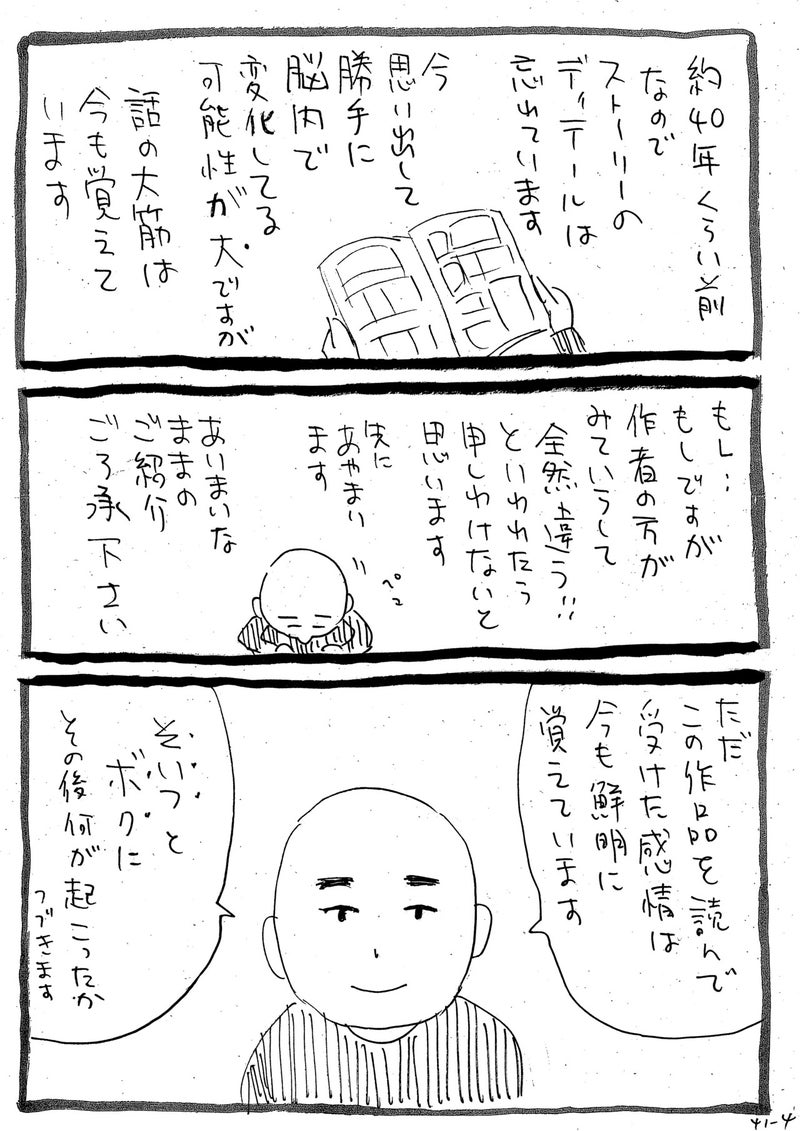 約40年くらい前
なので
ストーリーの
ディテールは
忘れています
今
思い出して
勝手に
脳内で
変化してる
可能性が大ですが
話の大筋は
今も覚えて
います
もし…
もしですが
作者の方が
みていらして
全然違う!!
といわれたら
申しわけないと
思います
先に
あやまい
ます
ペコ
あいまいな
ままの
ご紹介
ごろ承下さい
ただ
この作品を読んで
受けた感情は
今も鮮明に
覚えています
そいつと
ボクに
その後何が起こったか
つづきます
41-4